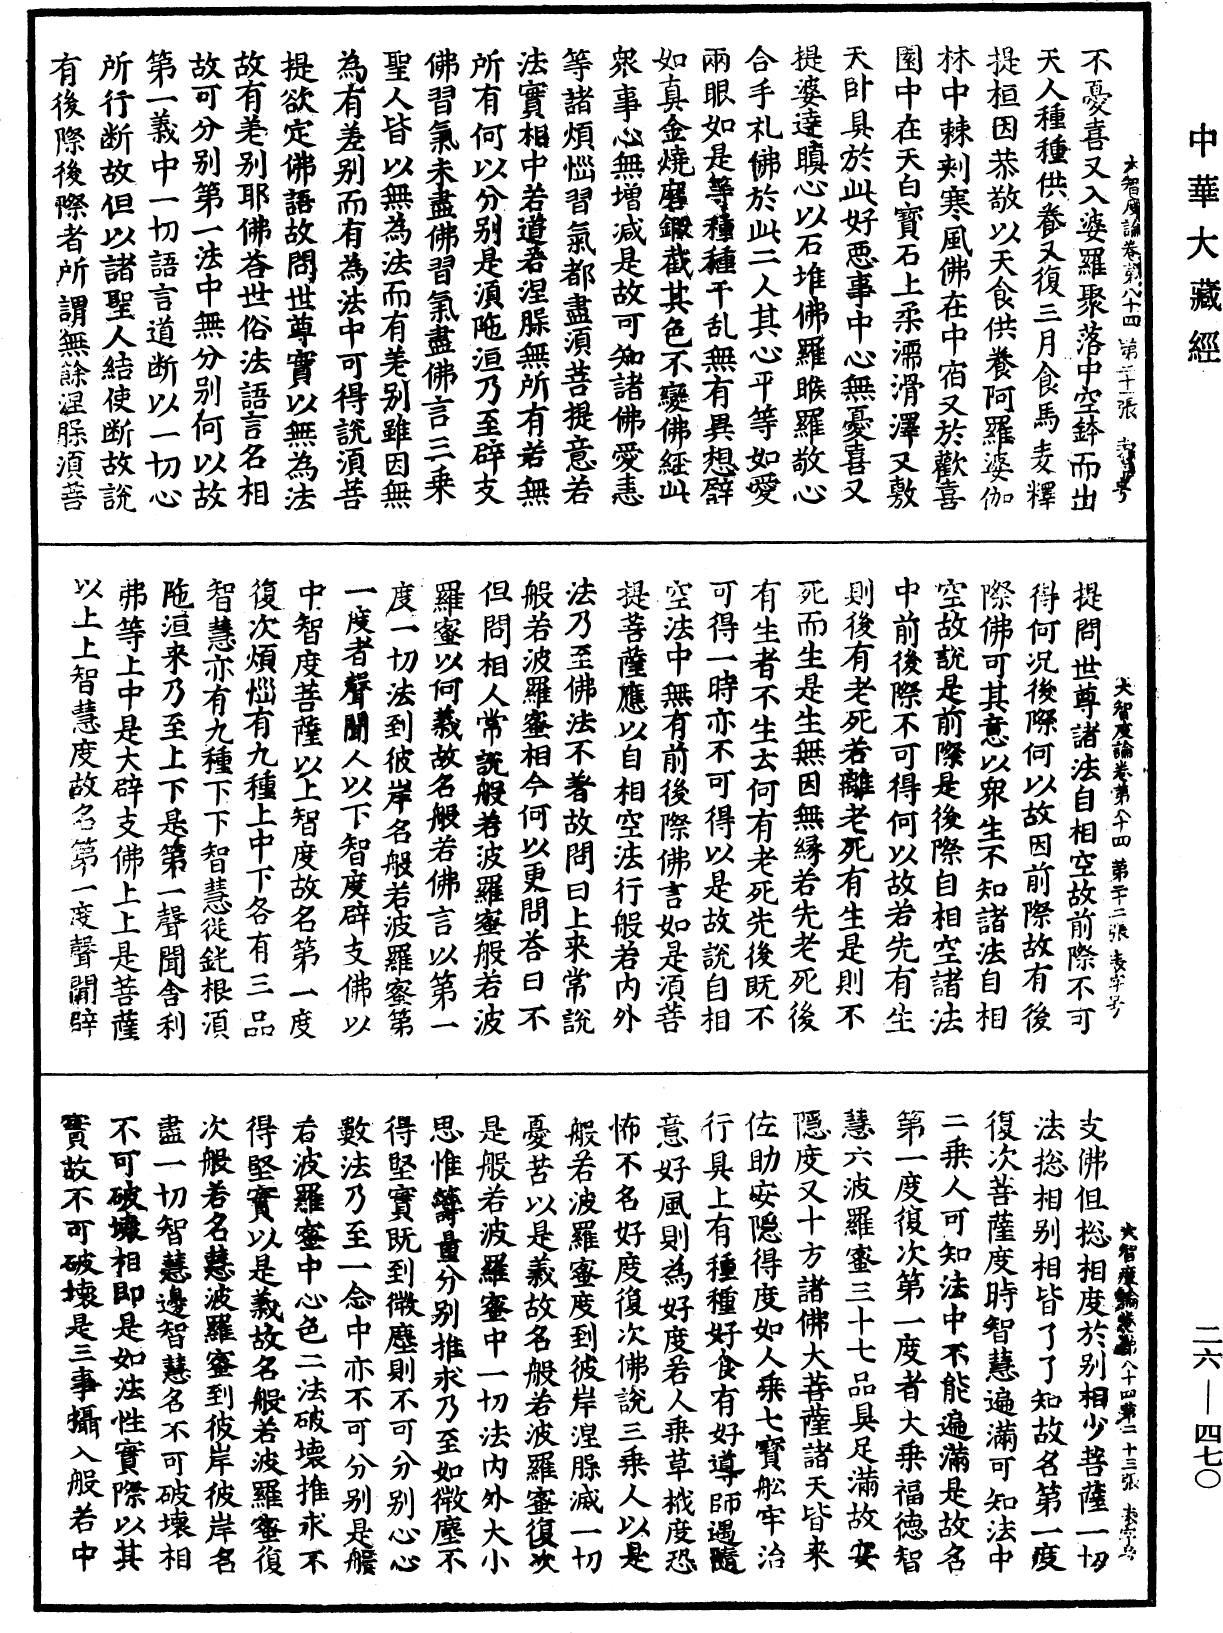 中華大藏經
大智度論卷第八十四 第二十一張
不憂喜又入婆羅聚落中空鉢而出
天人種種供養又復三月食馬麦釋
提桓因恭敬以天食供養阿羅婆伽
林中棘刺寒風佛在中宿又於歡喜
園中在天白寶石上柔濡滑澤又敷
天卧具於此好惡事中心無憂喜又
提婆達瞋心以石堆佛羅睺羅敬心
合手礼佛於此二人其心平等如愛
兩眼如是等種種干乱無有異想譬
如真金燒磨鍛截其色不變佛經此
衆事心無增減是故可知諸佛愛恚
等諸煩惱習氣都盡須菩提意若
法實相中若道若涅槃無所有若無
所有何以分別是須陁洹乃至辟支
佛習氣未盡佛習氣盡佛言三乘
聖人皆以無為法而有差別雖因無
為有差別而有為法中可得說須菩
提欲定佛語故問世尊實以無為法
故有差別耶佛荅世俗法語言名相
故可分別第一法中無分別何以故
第一義中一切語言道断以一切心
所行断故但以諸聖人結使断故說
有後際後際者所謂無餘涅槃須菩
大智度論卷第八十四 第二十二張
提問世尊諸法自相空故前際不可
得何况後際何以故因前際故有後
際佛可其意以衆生不知諸法自相
空故說是前際是後際自相空諸法
中前後際不可得何以故若先有生
則後有老死若離老死有生是則不
死而生是生無因無緣若先老死後
有生者不生云何有老死先後既不
可得一時亦不可得以是故說自相
空法中無有前後際佛言如是須菩
提菩薩應以自相空法行般若内外
法乃至佛法不著故問曰上来常說
般若波羅蜜相今何以更問荅曰不
但問相人常說般若波羅蜜般若波
羅蜜以何義故名般若佛言以第一
度一切法到彼岸名般若波羅蜜第
一度者聲聞人以下智度辟支佛以
中智度菩薩以上智度故名第一度
復次煩惱有九種上中下各有三品
智慧亦有九種下下智慧從鈍根須
陁洹来乃至上下是第一聲聞舍利
弗等上中是大辟支佛上上是菩薩
以上上智慧度故名第一度聲聞辟
大智度論卷第八十四 第二十三張
支佛但揔相度於別相少菩薩一切
法揔相別相皆了了知故名第一度
復次菩薩度時智慧遍滿可知法中
二乘人可知法中不能遍滿是故名
第一度復次第一度者大乘福德智
慧六波羅蜜三十七品具足滿故安
隱度又十方諸佛大菩薩諸天皆来
佐助安隱得度如人乘七寶舩牢治
行具上有種種好食有好導師遇隨
意好風則為好度若人乘草栰度恐
怖不名好度復次佛說三乘人以是
般若波羅蜜度到彼岸涅槃滅一切
憂苦以是義故名般若波羅蜜復次
是般若波羅蜜中一切法内外大小
思惟籌量分別推求乃至如微塵不
得堅實既到微塵則不可分別心心
數法乃至一念中亦不可分別是般
若波羅蜜中心色二法破壞推求不
得堅實以是義故名般若波羅蜜復
次般若名慧波羅蜜到彼岸彼岸名
盡一切智慧邊智慧名不可破壞相
不可破壞相即是如法性實際以其
實故不可破壞是三事攝入般若中
二六—四七〇